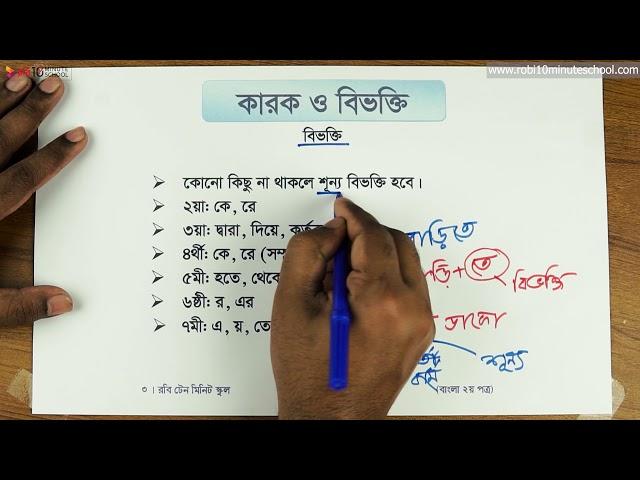 রবি 10 MINUTE SCHOOL
www.robi10minuteschool.com
কারক ও বিভক্তি
বিভক্তি
কোনো কিছু না থাকলে শূন্য বিভক্তি হবে।
২য়া: কে, রে
৩য়া: দ্বারা, দিয়ে,
৪র্থী: কে, রে
৫মী: হতে,
৬ষ্ঠী: র, এর
৭মী: এ, য়, তে
+ তে বিভক্তি
শূন্য
৩ | রবি টেন মিনিট স্কুল
(বাংলা ২য় পত্র)